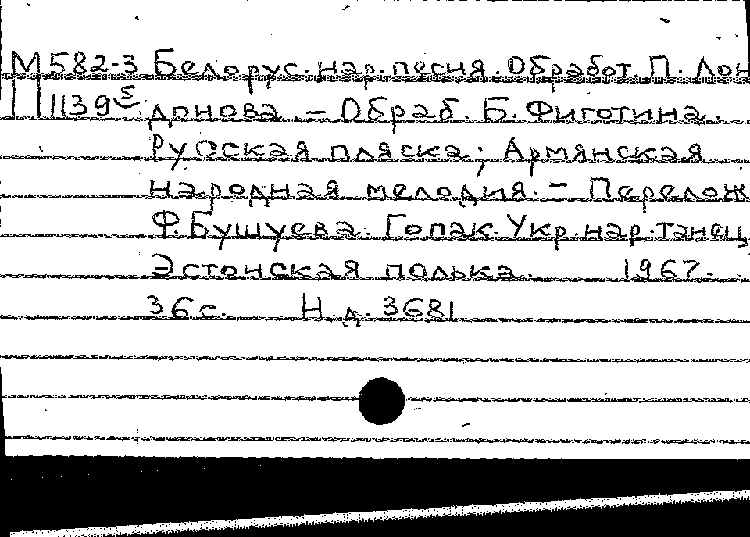 М 582-3 Белорус. нар. песня. Обработ. П. Лон
1139 донова. – Обраб. Б. Фиготина.
Русская пляска; Армянская
народная мелодия. – Перелож
Ф. Бушуева. Гопак. Укр. нар. танец
Эстонская полька. 1967.
36 с. Н. д. 3681